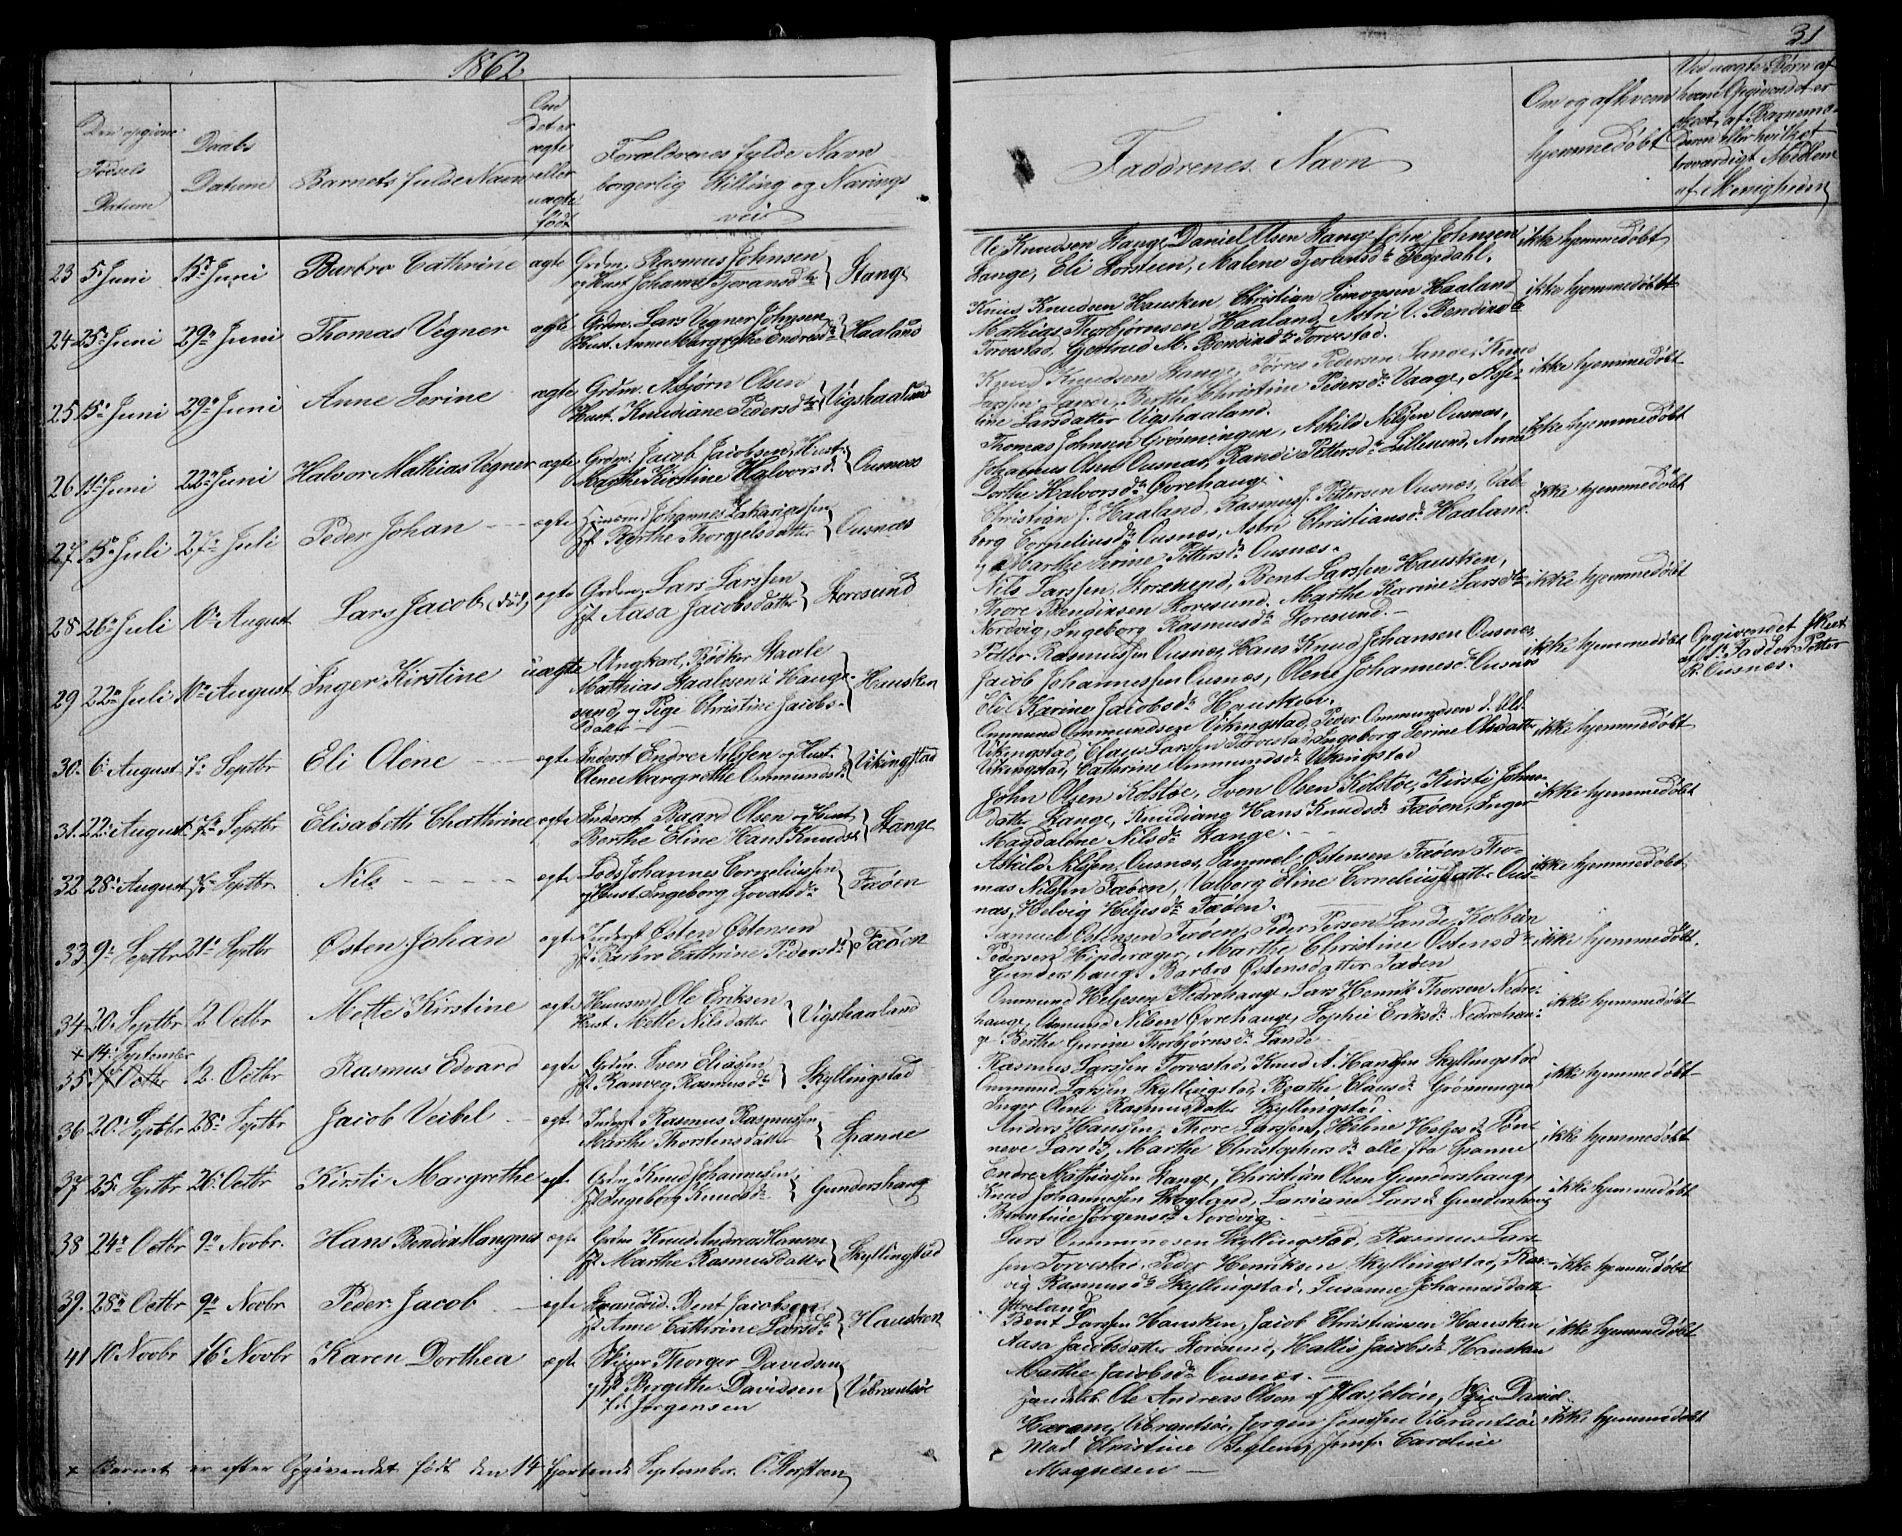 1862
31
Den opgivne
Fødsels
Datum
Daabs
Datum
Barnets fulde Navn
Om
det er
ægte
eller
uægte
født
Forældrenes fulde Navn
borgerlig Stilling og Nærings
vei
Faddrenes Navn
Om og af hvem
hjemmedøbt
Ved uægte Børn af
hvem Opgivendet er
skeet, af Barnemo-
deren eller hvilket
troværdigt Medlem
af Menigheden
23 5 Juni 15 Juni Barbro Cathrine ægte Grdm. Rasmus Johnsen
og Hust Johanne Tjerandsdtr } Stange
Ole Knudsen Stange, Daniel Olsen Stange, John Johnsen
Stange, Eli Storsteen, Malene
ikke hjemmedøbt
24 25 Juni 29 Juni Thomas Vegner ægte Grdm. Lars Vegner Johnsen
Hust. Anne Margrethe Endresdtr } Haaland
Knud Knudsen Hausken, Christian Simonsen Haaland
Mathias Thorbjørnsen Haaland, Astri V. Bendixdtr
Torvestad, Gertrud M. Bendixdtr Torvestad.
ikke hjemmedøbt
25 15 Juni 29 Juni Anne Serine ægte Grdm. Asbjørn Olsen
Hust. Knudiane Pedersdtr } Vigshaaland
Knud Knudsen Stange, Tørres Pedersen Lande, Knud
Larssen Lande, Berthe Christine Pedersdr Vaage, Axe-
line Larsdatter Vigshaaland.
ikke hjemmedøbt
26 11 Juni 22 Juni Halvor Mathias Vegner ægte Grdm. Jacob Jacobsen, Hust.
Marthe Kirstine Halvorsd. } Ousnæs
Thomas Johnsen Grønningen, Askild Nilssen Ousnæs,
Johannes Olsen Ousnæs, Randi Pettersdr Lillesund, Anne
Dorthe Halvorsdr Øvrehauge.
ikke hjemmedøbt
27 15 Juli 27 Juli Peder Johan ægte Johannes Zakariassen
Hf Berthe Thorgjelsdatter } Ousnæs
Christian J. Haaland, Rasmus J. Pettersen Ousnæs, Val-
borg Corneliusdr Ousnæs, Astri Christiansdr Haaland
og Marthe Serine Pettersdr Ousnæs.
ikke hjemmedøbt
28 26 Juli 10 August Lars Jacob (død) ægte Grdm. Lars Larssen
Hf Aasa Jacobsdatter } Storesund
Nils Larssen Storesund, Bent Larssen Hausken,
Thore Bendixsen Storesund, Marthe Karine Larsdtr
Nordvig, Ingeborg Rasmusdr Storesund.
ikke hjemmedøbt
29 22 Juli 10 August Inger Kirstine uægte Ungkarl, Bødker Staale
Mathias Staalesen i Hauge-
sund, og Pige Christine Jacobs-
datter } Hausken
Petter Rasmussen Ousnæs, Hans Knud Johansen Ousnæs,
Jacob Johannessen Ousnæs, Olene Johannesd. Ousnæs
Eli Karine Jacobsdr Hausken.
ikke hjemmedøbt
Opgivendet skeet
af Fadder Petter
R. Ousnæs.
30. 6 August 7 Septbr Eli Olene ægte Inderst Endre Nilssen og Hust.
Olene Margrethe Ommundsdr } Vikingstad
Ommund Ommundsen Vikingstad, Peder Ommundsen d. Eld.
Vikingstad, Claus Larssen Torvestad, Ingeborg Serine Olsdatter
Vikingstad, Cathrine Ommundsdr Vikingstad
ikke hjemmedøbt
31. 22 August 7 Septbr Elisabeth Chathrine ægte Inderst Baard Olsen og Hust
Berthe Eline Hans Knudsdr } Stange
John Olsen Kolstøe, Sven Olsen Kolstøe, Kirsti Johns-
datter Stange, Knudiane Hans Knudsdr Faøen, Inger
Magdalene Nilsdr Stange.
ikke hjemmedøbt
32 28 August 7 Septbr Nils ægte Lods Johannes Corneliussen
og Hust. Ingeborg } Faøen
Askild Nilssen, Ousnæs, Sammel Østensen Faøen, Tho-
mas Nilssen Faøen, Valborg Eline Corneliusdatter Ous-
næs, Helvig Helgesdr Faøen.
ikke hjemmedøbt
33 9 Septbr 21 Septbr Østen Johan ægte Inderst Østen Østensen
Hf Barbro Cathrine Pedersdr } Faøen
Samuel Østensen Faøen, Peder Persen Lande, Kolbein
Pedersen Marthe Christine Østensdr
Gundershaug, Barbro Østensdatter Faøen
ikke hjemmedøbt.
34 20 Septbr 12 Octbr Mette Kirstine ægte Huusmd Ole Eriksen
Hust. Mette Nilsdatter } Vigshaaland
Ommund Helgesen Nedrehauge, Lars Henrik Thorsen Nedre-
hauge, Osmund Nilsen Øvrehauge, Sophie Eriksdr Nedrehau-
ge Berthe Gurine Thorbjørnsdr Lande
ikke hjemmedøbt
+ 14 September
35 12 Octbr Rasmus Edvard ægte Grdm. Sven Eliassen
Hf Ranveg Rasmusdr } Skyllingstad
Rasmus Larssen Torvestad, Knud A. Hanssen Skyllingstad
Ommund Larssen Skyllingstad, Beathe Clausdr Grønningen
Inger Olene Rasmusdatter Skyllingstad.
ikke hjemmedøbt
36 20 Septbr 28 Septbr Jacob Veibel ægte Inderst Rasmus Rasmussen
Marthe Thorstensdatter } Spanne
Anders Hanssen, Thore Larssen, Helene Helgesd. Røn-
neve Larsdr, Marthe Christophersdr alle fra Spanne
ikke hjemmedøbt
37 25 Septbr 26 Octbr Kirsti Margrethe Grdm. Knud Johannessen
Hf Ingeborg Knudsdr } Gundershaug
Endre Mathiassen Stange, Christian Olsen Gundershaug,
Knud Johannessen Skogland, Lariane Larsd. Gundershaug
Berentine Jørgensd. Nordvig.
ikke hjemmedøbt
38 24 Octbr 9 Novbr. Hans Bendix Mangnus ægte Grdm Knud Andreas Hansen
Hf Marthe Rasmusdatter } Skyllingstad
Lars Ommundsen Skyllingstad, Rasmus Lars-
sen Torvestad, Peder Henriksen Skyllingstad, Ran-
vig Rasmusdr Skyllingstad, Susanne Johannesdatter
Ytreland
ikke hjemmedøbt
39. 28 Octbr 9 Novbr Peder Jacob ægte Bent Jacobsen
Hf Anne Cathrine Larsdr } Hausken
Bent Larssen Hausken, Jacob Christiansen Hausken
Aasa Jacobsdatter Storesund, Hallis Jacobsdr Hausken
Marthe Jacobsdr Ousnæs.
ikke hjemmedøbt
41 10 Novbr 16 Novbr Karen Dorthea ægte Skipper Thorger Davidsen
og Hf Bergithe Davidsen
f. Jørgensen } Vibrandsøe
Handelsb. Ole Andreas Olsen af Hasseløen, David
Vibrandsøe, Jørgen Jenssen Vibrandsøe
Mad Christine Jomfr Caroline
Magnesen
ikke hjemmedøbt
+ Barnet er efter Opgivendet født den 14 fjortende September. O. Storsteen